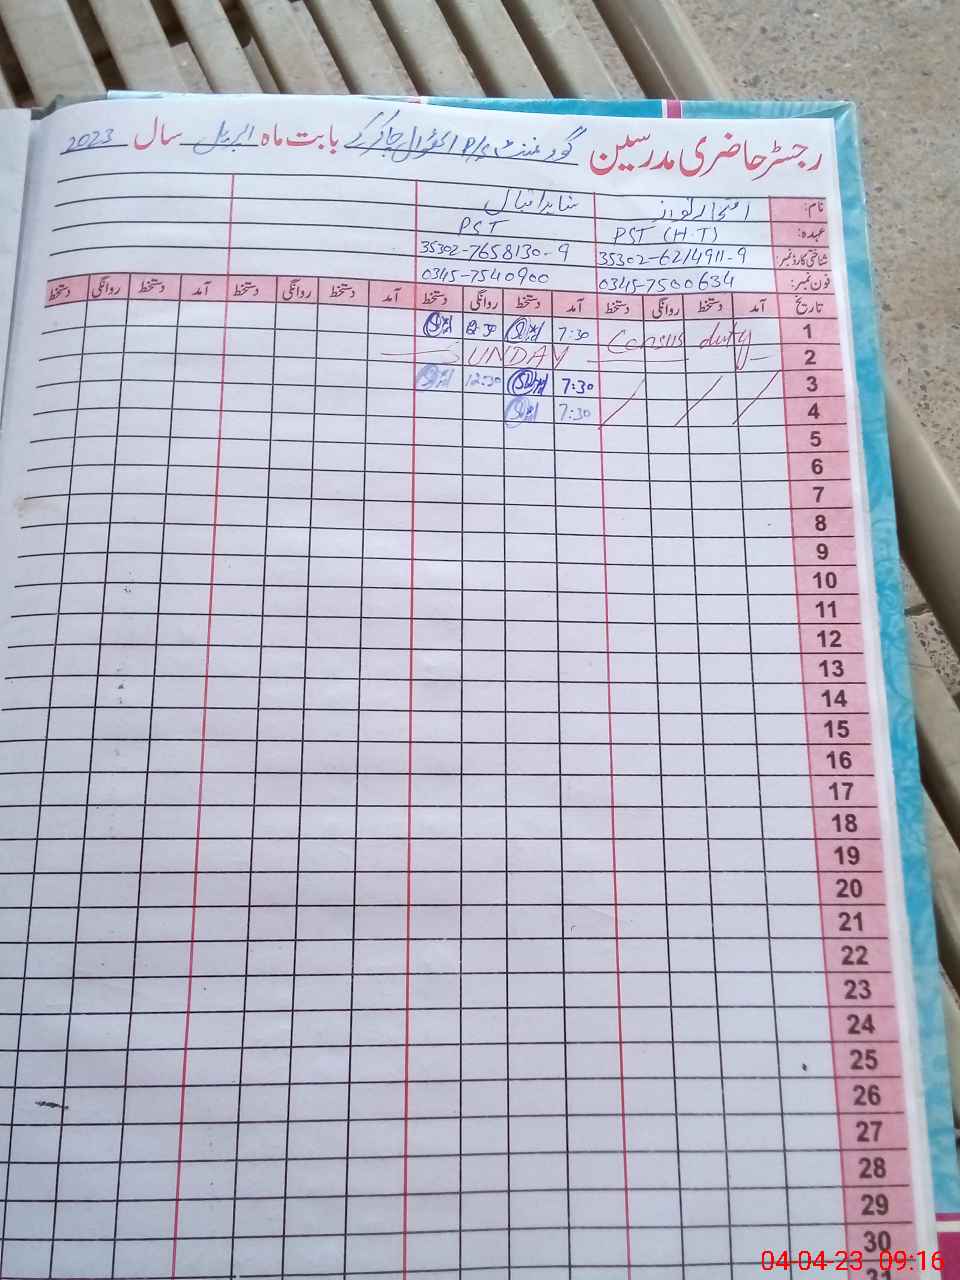 رجسٹر حاضری مدرسین گورنمنٹ P/S بابت ماہ اپریل سال 2023
نام: افتخار نواز شاہد اقبال
عہدہ: PST (H.T) PST
شناختی کارڈ نمبر: 35302-6214911-9 35302-7658130-9
فون نمبر: 0345-7500634 0345-7540900
تاریخ آمد دستخط روانگی دستخط آمد دستخط روانگی دستخط آمد دستخط روانگی دستخط آمد دستخط روانگی دستخط
1 Census duty 7:30 12:30
2 SUNDAY
3 7:30 12:30
4 7:30
5
6
7
8
9
10
11
12
13
14
15
16
17
18
19
20
21
22
23
24
25
26
27
28
29
30
31
04-04-23 09:16